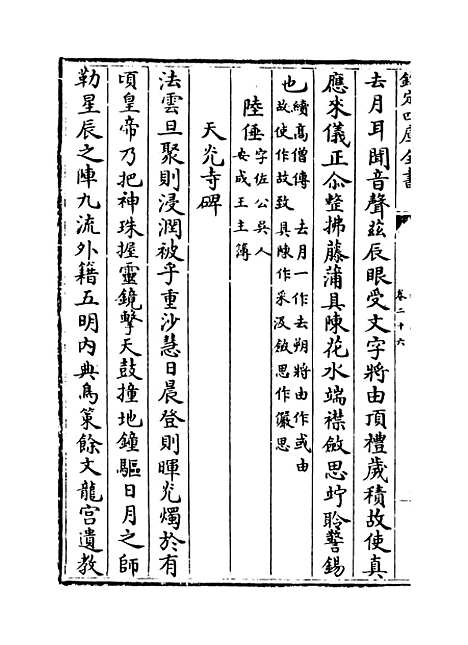 欽定四庫全書
卷二十六
去月耳聞音聲茲辰眼受文字將由頂禮歲積故使真
應來儀正尒整拂藤蒲具陳花水端襟斂思竚聆警錫
也續高僧傳　去月一作去朔將由作或由
故使作故致具陳作采汲斂思作儼思
陸倕字佐公吳人
安成王主簿
天光寺碑
法雲旦聚則浸潤被乎重沙慧日晨登則暉光燭於有
頃皇帝乃把神珠握靈鏡擊天鼓撞地鐘驅日月之師
勒星辰之陣九流外籍五明内典鳥策餘文龍宫遺教